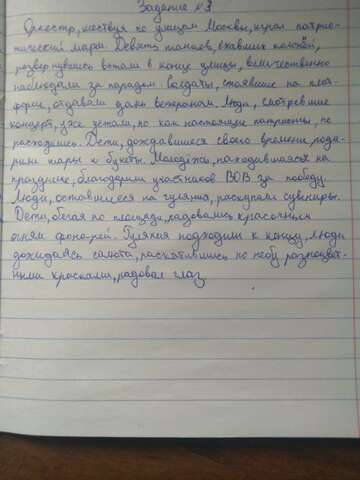 Задание №3
Оркестр, шествуя по улицам Москвы, играл патрио-
тический марш. Девять танков, ехавших колонной,
развернувшись встали в конце улицы, величественно
наблюдали за парадом. Солдаты, стоявшие на плат-
форме, отдавали дань ветеранам. Люди, смотревшие
концерт, уже устали, но как настоящие патриоты, не
расходились. Дети, дождавшиеся своего времени, пода-
рили шары и букеты. Молодёжь, находившаяся на
празднике, благодарили участников ВОВ за победу.
Люди, оставшиеся на гуляния, раскупали сувениры.
Дети, бегая по площади, радовались красочным
огням фонарей. Гуляния подходили к концу, люди
дожидаясь салюта, раскатившись по небу разноцвет-
ными красками, радовал глаз